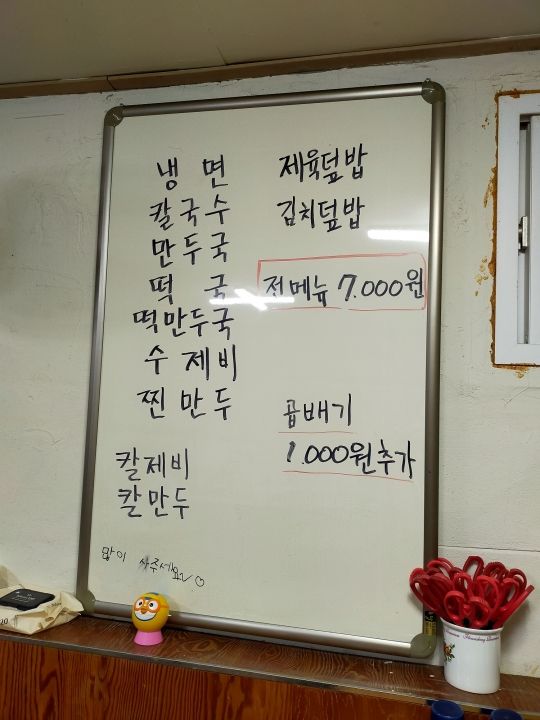 냉 면
칼국수
만두국
떡 국
떡만두국
수 제비
찐 만두
칼제비
칼만두
많이 사주세요~♡
제육덮밥
김치덮밥
전메뉴 7.000원
곱배기
1.000원추가